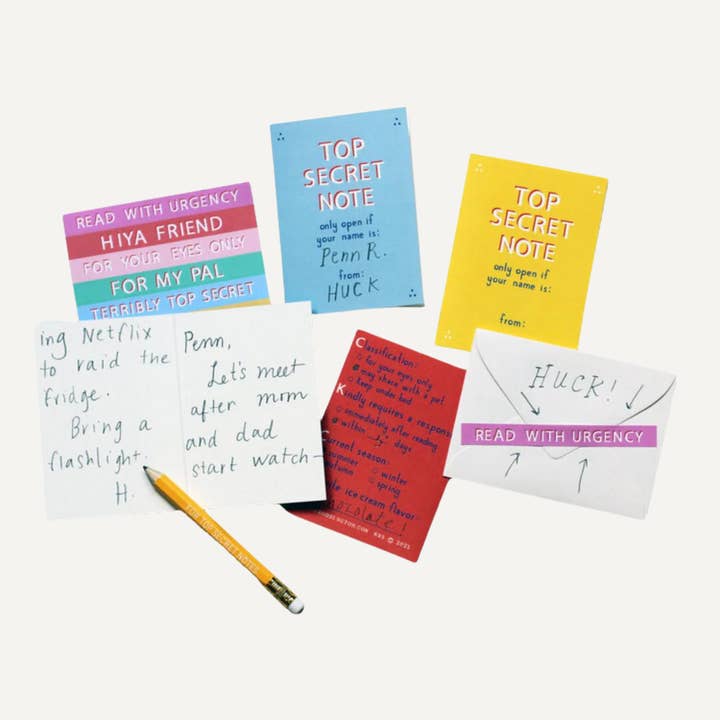 READ WITH URGENCY
HIYA FRIEND
FOR YOUR EYES ONLY
FOR MY PAL
TERRIBLY TOP SECRET
TOP
SECRET
NOTE
only open if
your name is:
Penn R.
from:
HUCK
TOP
SECRET
NOTE
only open if
your name is:
from:
ing Netflix
to raid the
fridge.
Bring a
flashlight.
H.
Penn,
Let's meet
after mom
and dad
start watch-
FOR TOP SECRET NOTES
Classification:
for your eyes only
may share with a pet
keep under bed
Kindly requires a response
immediately after reading
within days
Current season:
summer
winter
autumn
spring
ice cream flavor:
chocolate!
HUCK!
READ WITH URGENCY